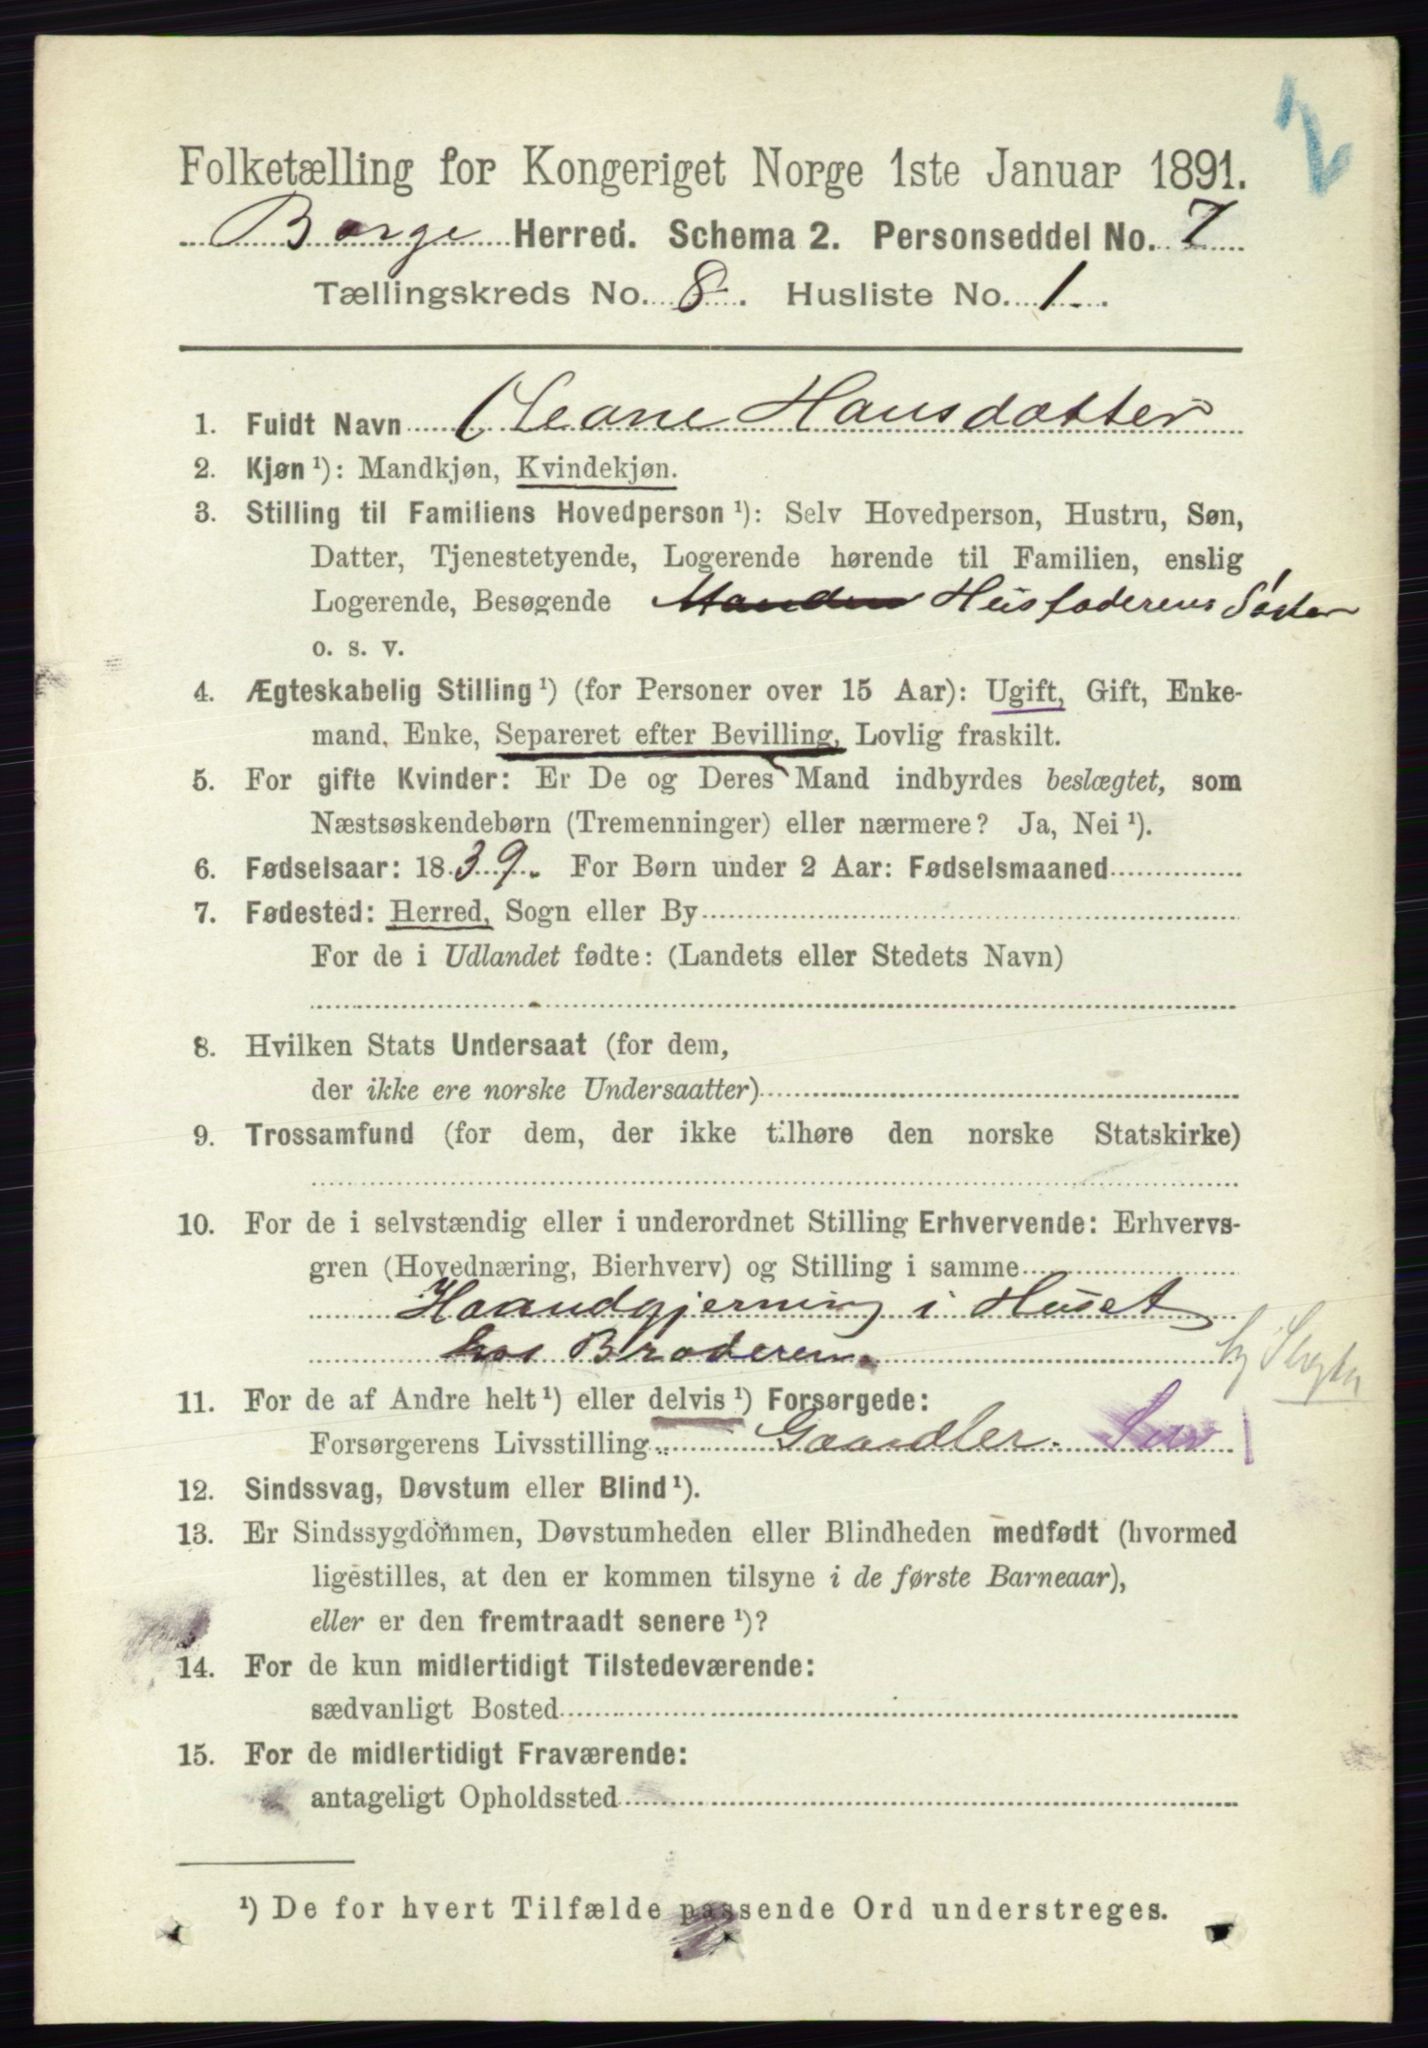 Folketælling for Kongeriget Norge 1ste Januar 1891.
Borge Herred. Schema 2. Personseddel No. 7
Tællingskreds No. 8. Husliste No. 1.
1. Fuldt Navn Hansdatter
2. Kjøn ¹): Mandkjøn, Kvindekjøn.
3. Stilling til Familiens Hovedperson ¹): Selv Hovedperson, Hustru, Søn,
Datter, Tjenestetyende, Logerende hørende til Familien, enslig
Logerende, Besøgende Manden Husfaderens Søster
o. s. v.
4. Ægteskabelig Stilling ¹) (for Personer over 15 Aar): Ugift, Gift, Enke-
mand, Enke, Separeret efter Bevilling, Lovlig fraskilt.
5. For gifte Kvinder: Er De og Deres Mand indbyrdes beslægtet, som
Næstsøskendebørn (Tremenninger) eller nærmere? Ja, Nei ¹).
6. Fødselsaar: 1839. For Børn under 2 Aar: Fødselsmaaned
7. Fødested: Herred, Sogn eller By
For de i Udlandet fødte: (Landets eller Stedets Navn)
8. Hvilken Stats Undersaat (for dem,
der ikke ere norske Undersaatter)
9. Trossamfund (for dem, der ikke tilhøre den norske Statskirke)
10. For de i selvstændig eller i underordnet Stilling Erhvervende: Erhvervs-
gren (Hovednæring, Bierhverv) og Stilling i samme
Haandgjerning i Huset
hos Broderen.
11. For de af Andre helt ¹) eller delvis ¹) Forsørgede:
Forsørgerens Livsstilling
12. Sindssvag, Døvstum eller Blind ¹).
13. Er Sindssygdommen, Døvstumheden eller Blindheden medfødt (hvormed
ligestilles, at den er kommen tilsyne i de første Barneaar),
eller er den fremtraadt senere ¹)?
14. For de kun midlertidigt Tilstedeværende:
sædvanligt Bosted
15. For de midlertidigt Fraværende:
antageligt Opholdssted
¹) De for hvert Tilfælde passende Ord understreges.